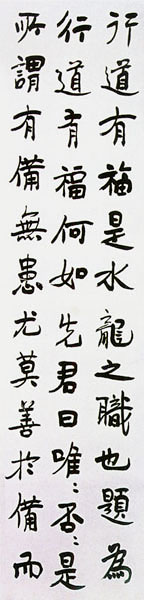 行道有福是水龍之職也題為
行道有福何如先君曰唯:否:是
所謂有備無患尤莫善於備而